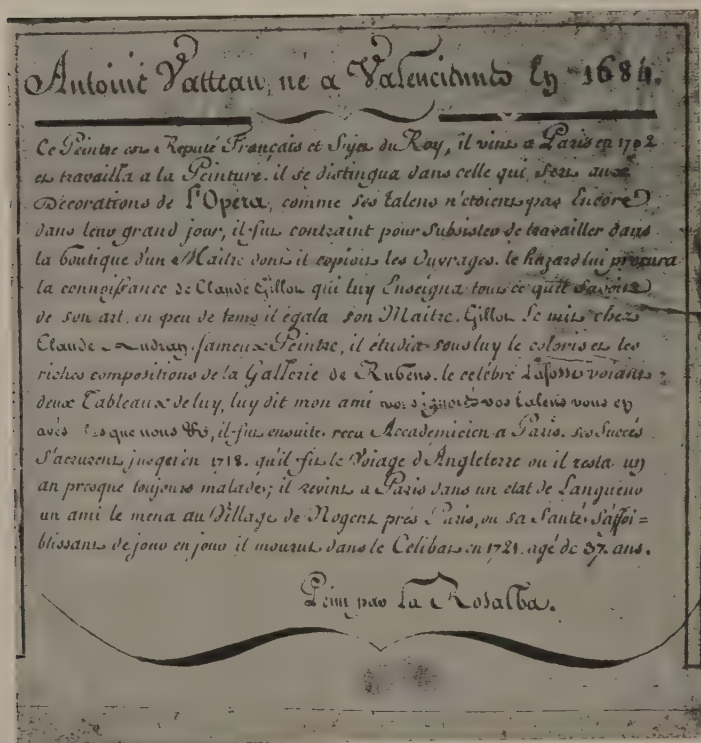 Antoine Vatteau, né a Valenciennes En 1684.
Ce Peintre est Reputé Français et Sujet du Roy, il vint a Paris en 1702
et travailla a la Peinture. il se distingua dans celle qui sert aux
Décorations de L'Opera, comme ses talens n'étoient pas Encore
dans leur grand jour, il fut contraint pour subsister de travailler dans
la boutique d'un Maitre dont il copioit les Ouvrages. le hazard lui procura
la connoissance de Claude Gillot qui luy Enseigna tout ce qu'il savoit
de son art, en peu de tems il égala son Maitre. Gillot le mit chez
Claude Audran fameux Peintre, il étudia sous luy le coloris et les
riches compositions de la Gallerie de Rubens. le celebre Lafosse voiant
deux Tableaux de luy, luy dit mon ami vous ignorés vos talens vous en
avés plus que nous &c, il fut ensuite recu Accademicien a Paris. ses Succés
s'acrurent jusqu'en 1718. qu'il fit le Voiage d'Angleterre ou il resta un
an presque toujours malade; il revint a Paris dans un etat de Langueur
un ami le mena au Village de Nogent prés Paris, ou sa Santé s'affoi=
blissant de jour en jour il mourut dans le Celibat en 1721. agé de 37 ans.
Peint par la Rosalba.